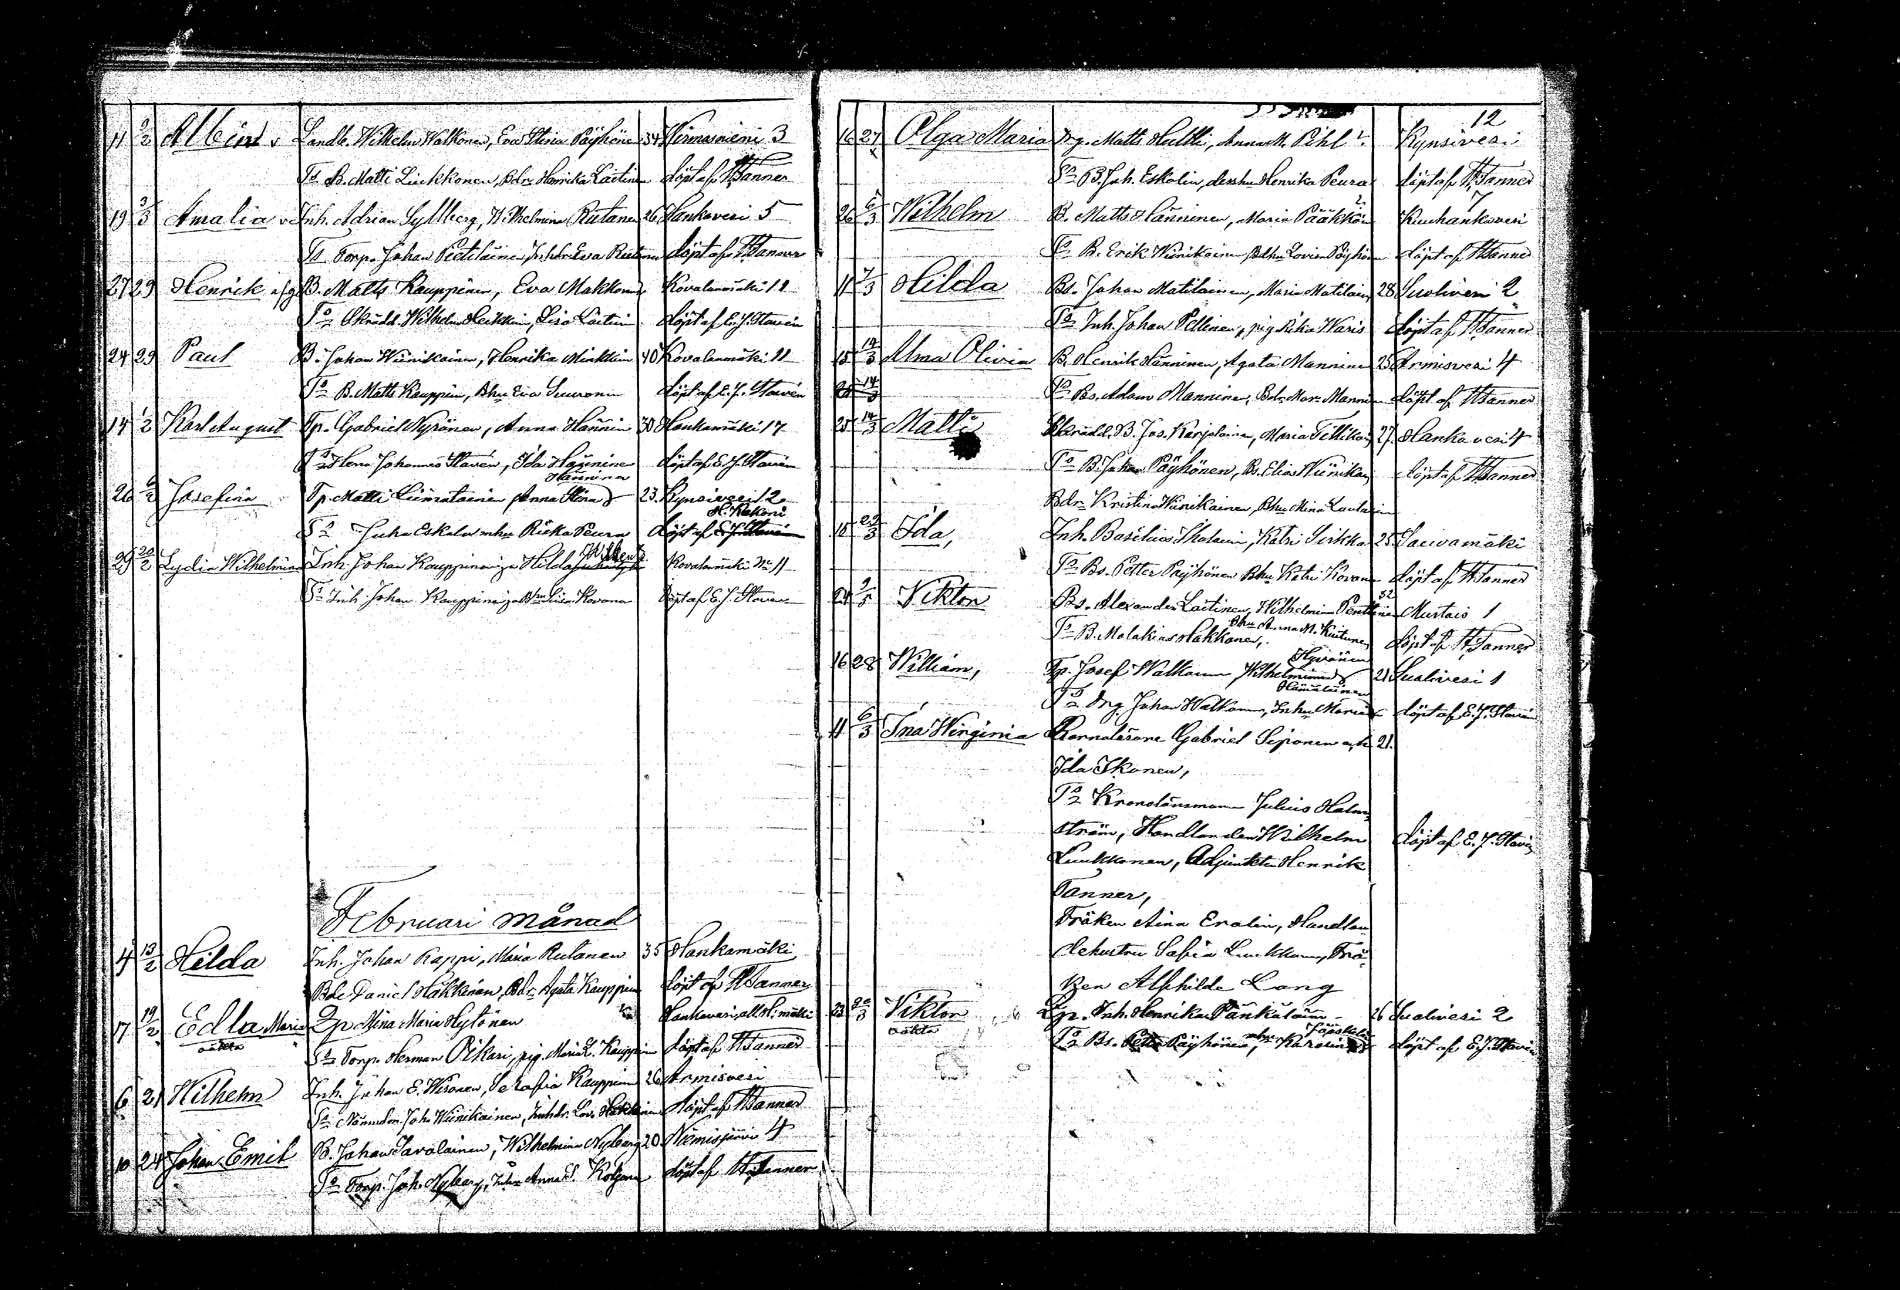 11 9/2 Albin Landb. Wilhelm Walkonen, Eva Stina Päyhönen 34 Wirmasniemi 3
B. Matti Liukkonen, Bdr. Henrika Laitinen döpt af H. Tanner
19 3/3 Amalia Inh. Adrian Syllberg, Wilhelmina Rutanen 26 Hankavesi 5
Torp. Johan Pietiläinen, Eva Rutanen döpt af H. Tanner
27 29 Henrik B. Matts Kauppinen, Eva Makkonen Kovalanmäki 11
Skrädd. Wilhelm Heikkin, Lisa Laitin döpt af E. J. Stavén
24 29 Paul B. Johan Wiinikainen, Henrika Minkkin 40 Kovalanmäki 11
B. Matts Kauppin, Bhu Eva Suuronen döpt af E. J. Stavén
14 1/2 Karl August Tp. Gabriel Nyrönen, Anna Hännin 30 Hankamäki 17
Herra Johannes Stavén, Ida Hänninen döpt af E. J. Stavén
Hännina
26 6/2 Josefina Tp. Matti Liimatainen, Anna Stina 23. Kynsivesi 12
H. Kekoni
Juha Eskelin, Riikka Peura döpt af E. J. Stavén
29 20/2 Lydia Wilhelmina Inh. Johan Kauppinen, Hilda Kovalanmäki No 11
Inh. Johan Kauppinen, Bhu Lisa Kovana döpt af E. J. Stavén
Februari månad
4 13/2 Hilda Inh. Johan Kappi, Maria Rutanen 35 Hankamäki
Bde Daniel Hakkinen, Bdr Agata Kauppinen döpt af H. Tanner
7 19/2 Edla Maria Qp Mina Maria Hytönen Hankavesi
oäkta
Torp. Herman Oikari, pig. Maria L. Kauppin döpt af H. Tanner
6 21 Wilhelm Inh. Johan E. Wesanen, Serafia Kauppinen 26 Armisvesi
Nämndem. Joh. Wiinikainen, Lov. Hakkinen döpt af H. Tanner
10 24 Johan Emil B. Johan Savolainen, Wilhelmina Nyberg 20 Niemisjärvi 4
Torp. Joh. Nyberg, Anna S. Koljonen döpt af H. Tanner
12
16 27 Olga Maria Drg. Matts Hulkki, Anna M. Pihl Kynsivesi
B. Joh. Eskolin, Henrika Peura döpt af H. Tanner
26 6/3 Wilhelm B. Matts Hänninen, Maria Pääkkön Ruuhankavesi 7
B. Erik Wiinikainen, Bdhu Lovisa Päyhönen döpt af H. Tanner
11 7/3 Hilda Bs. Johan Matilainen, Maria Matilain 28 Suolivesi 2
Inh. Johan Pellinen, pig Riika Waris döpt af H. Tanner
15 14/3 Alma Olivia B. Henrik Hänninen, Agata Manninen 25 Armisvesi 4
14/3 Bs. Adam Manninen, Bdr. Mar. Mannin döpt af H. Tanner
25 14/3 Matti Skrädd. B. Jos. Karjalainen, Maria Tiilikai 27. Hankavesi 4
B. Johan Päyhönen, Bs. Elias Wiinikai döpt af H. Tanner
Bdr Kristina Wiinikainen, Bhu Mina Lautiainen
18 22/3 Ida, Inh. Basilius Ihalainen, Katri Sirkka 25. Sauvamäki
Bs. Petter Päyhönen Bhu Katri Kovanen döpt af H. Tanner
24 2/3 Viktor Bs. Alexander Laitinen, Wilhelmina Penttinen 32 Murtois 1
Bhu Anna M. Kiitunen
B. Malakias Hakkanen, döpt af H. Tanner
16 28 William, Tp. Josef Walkonen, Wilhelmina 21 Suolivesi 1
Hyvönen
Hämäläinen
Drg. Johan Walkonen, Inhu Maria döpt af E. J. Stavén
11 6/3 Ina Wirginia Barnalärare Gabriel Siponen och 21.
Ida Ikonen,
Kronolänsman Julius Holm-
ström, Handlanden Wilhelm döpt af E. J. Stavén
Luukkonen, Adjunkten Henrik
Tanner,
Fröken Aina Eralin, Handlan-
dehustru Sofia Luukkonen, Frö-
ken Alfhilde Lang
23 22/3 Viktor Qp. Inh. Henrika Pänkäläinen 26 Suolivesi 2
oäkta
Jääskeläi
Bs. Petter Päyhönen, Karolina döpt af E. J. Stavén